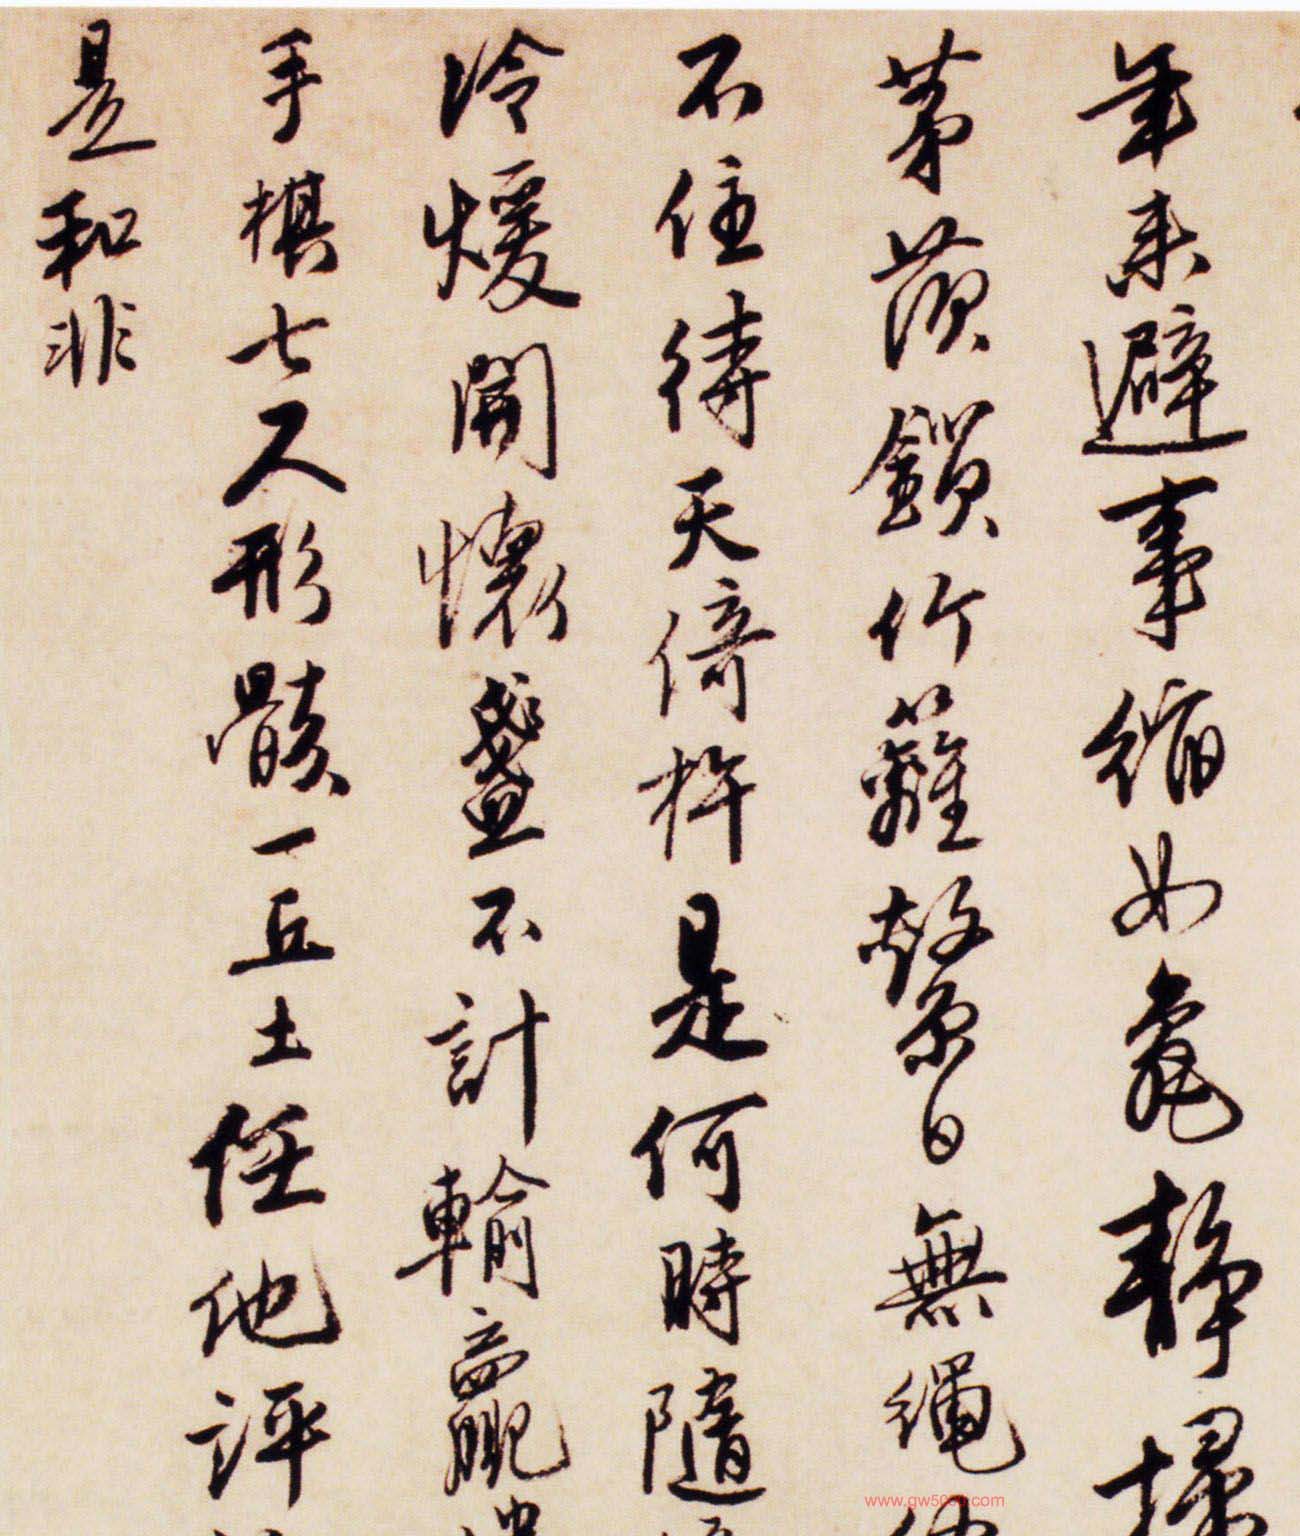 年来避事縮如龜靜掃
茅茨鎖竹籬繫日無繩
不住待天倚杵是何時隨
冷煖開懷盞不計輸贏
手棋七尺形骸一丘土任他評
是和非
www.gw5000.com